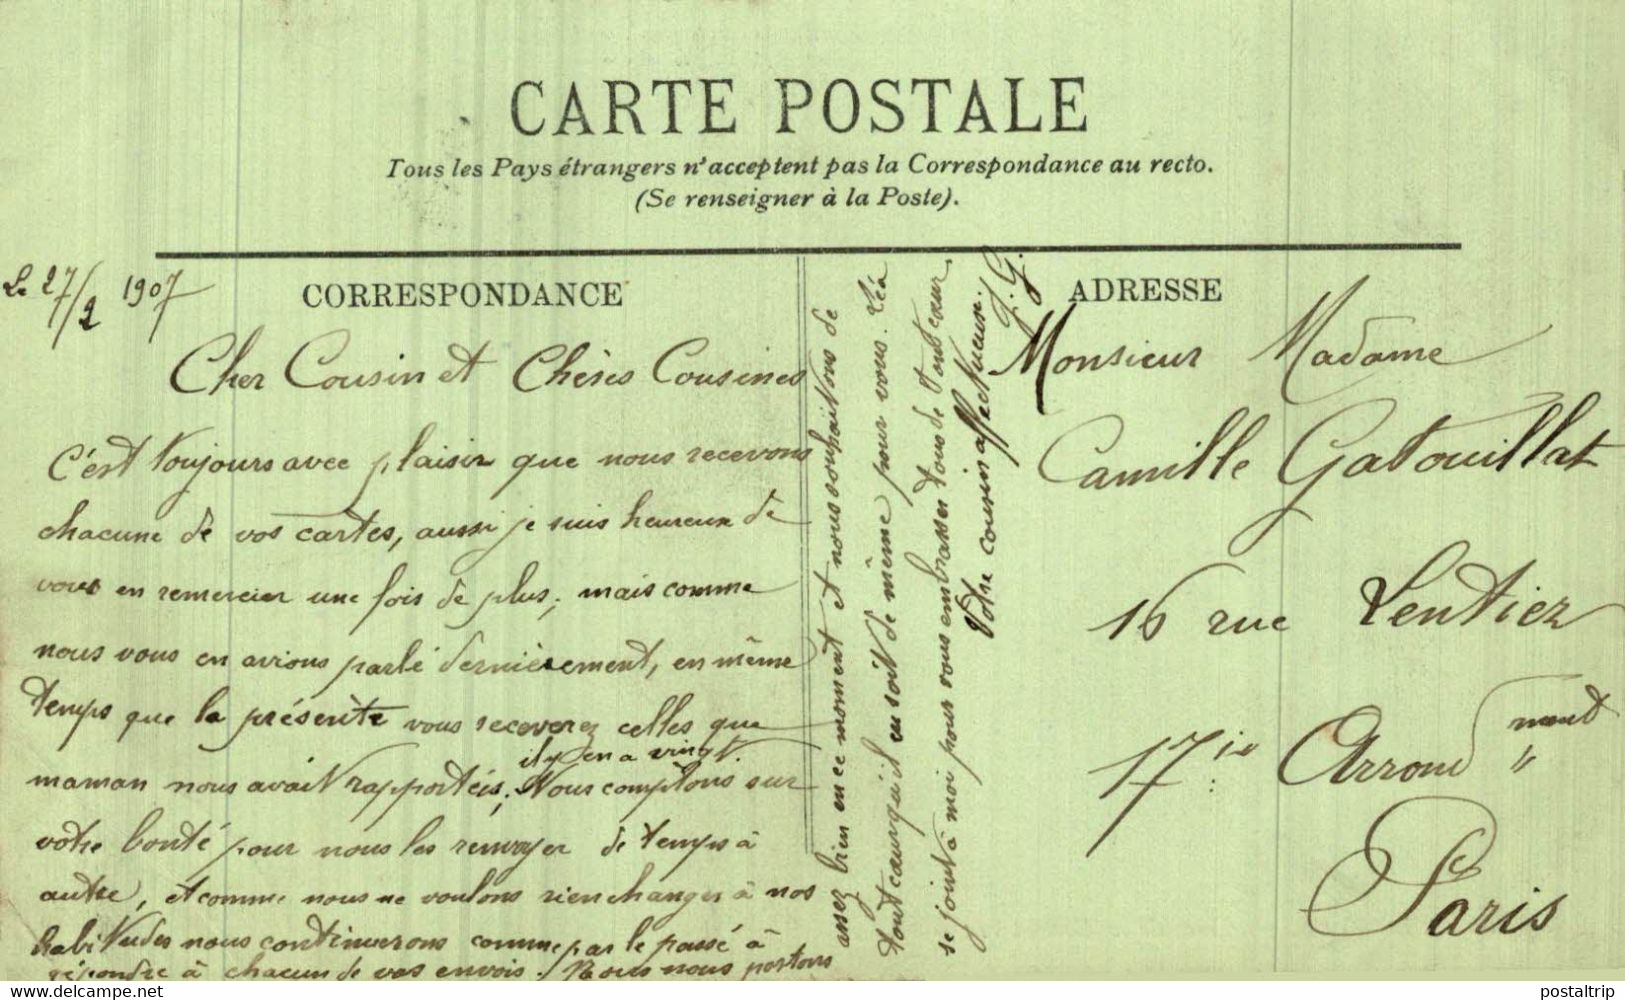 CARTE POSTALE
Tous les Pays étrangers n'acceptent pas la Correspondance au recto.
(Se renseigner à la Poste).
Le 27/2 1907
CORRESPONDANCE
Cher Cousin et Chères Cousines
C'est toujours avec plaisir que nous recevons
chacune de vos cartes, aussi je suis heureux de
vous en remercier une fois de plus; mais comme
nous vous en avions parlé dernièrement, en même
temps que la présente vous recevrez celles que
maman nous avait rapportées; il y en a vingt. Nous comptons sur
votre bonté pour nous les renvoyer de temps à
autre, et comme nous ne voulons rien changer à nos
habitudes nous continuerons comme par le passé à
répondre à chacun de vos envois. Nous nous portons
assez bien en ce moment et nous souhaitons de
tout cœur qu'il en soit de même pour vous. Léa
se joint à moi pour vous embrasser tous de tout cœur.
Votre cousin affectueux.
J. G.
ADRESSE
Monsieur Madame
Camille Gatouillat
16 rue Lentier
17ie Arrondment
Paris
postaltrip
https://www.delcampe.net